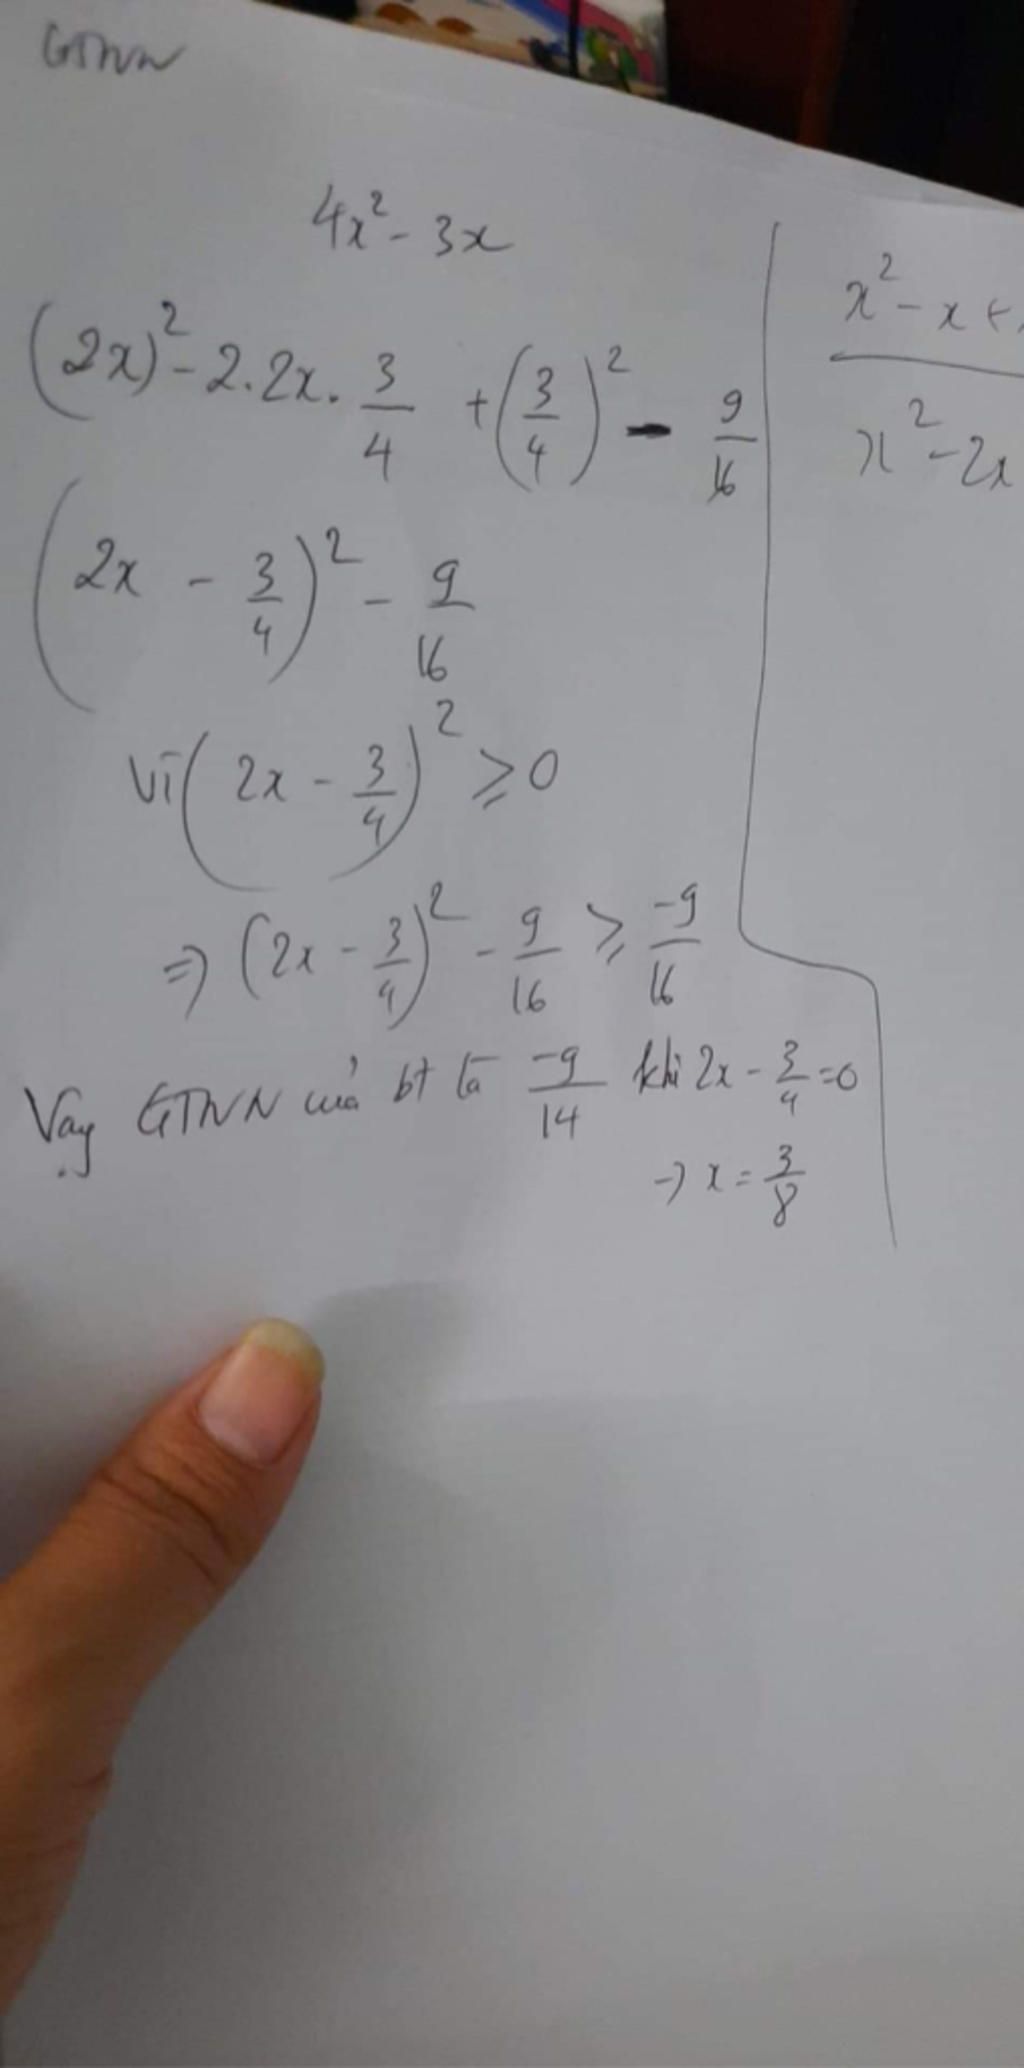 GTNN
4x² - 3x
(2x)² - 2.2x. 3/4 + (3/4)² - 9/16
(2x - 3/4)² - 9/16
Vì (2x - 3/4)² ⩾ 0
=> (2x - 3/4)² - 9/16 ⩾ -9/16
Vậy GTNN của bt là -9/14 khi 2x - 3/4 = 0
-> x = 3/8
x² - x +
x² - 2x